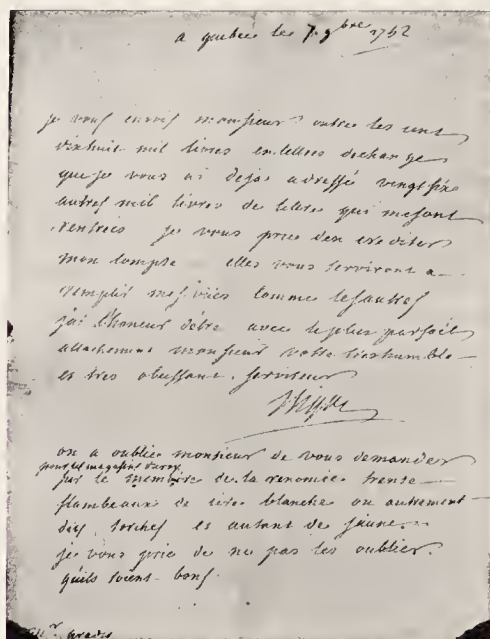 a quebec le 7 9bre 1752
je vous envois monsieur outre les cent
dixhuit mil livres en lettres dechange
que je vous ai deja adressé vingt six
autres mil livres de lettres qui me sont
rentrées je vous prie den crediter
mon compte elles vous serviront a
remplir mes vües comme les autres
jai l'honeur dêtre avec le plus parfait
attachement monsieur votre tres humble
et tres obeissant serviteur
on a oublié monsieur de vous demander
pour les magasins du roy
sur le memoire de la renomée trente
flambeaux de cire blanche ou autrement
dits torches et autant de jaune
je vous prie de ne pas les oublier
quils soient bons
Mr. Gradis